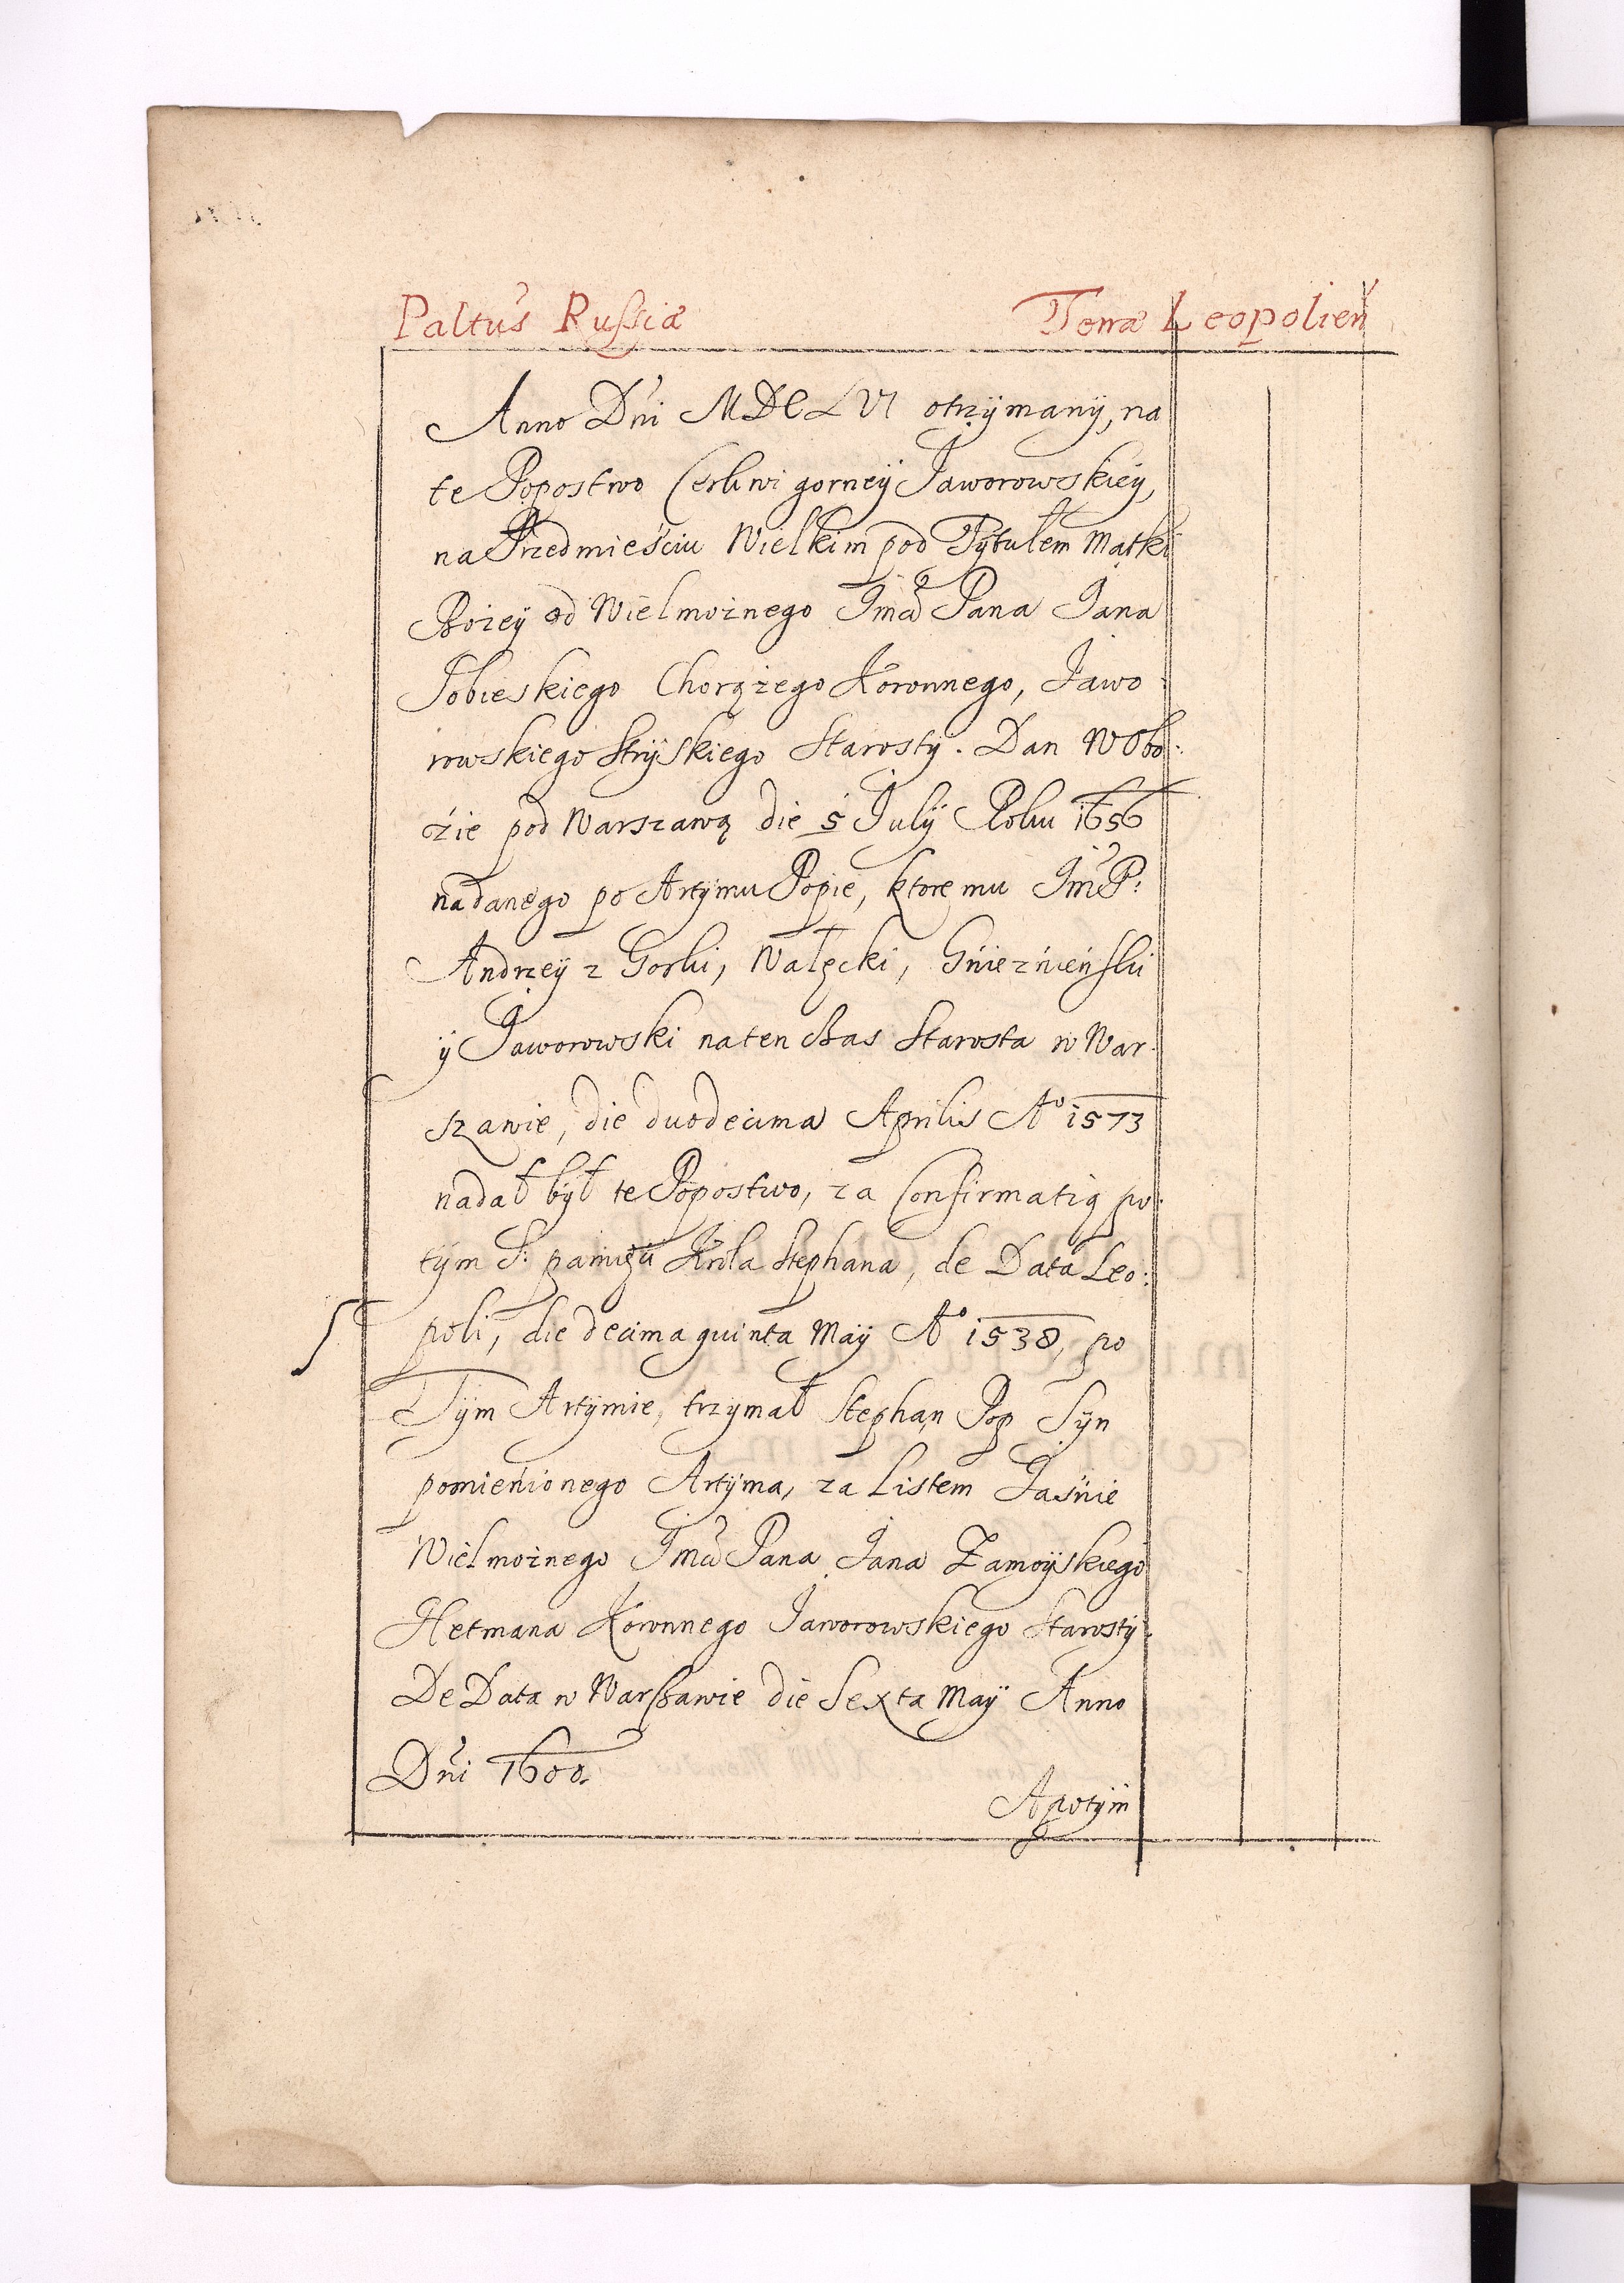 Paltus Russiæ Terræ Leopolien
Anno Dni MDCLVI otrzÿmanÿ, na
te Popostwo Cerkwi gorneÿ Jaworowskieÿ,
na Przedmieściu Wielkim pod Tÿtułem Matki
Bożeÿ od Wielmożnego Jmci Pana Jana
Sobieskiego Chorążego Koronnego, Jawo:
rowskiego Strÿskiego Starostÿ. Dan W Obo:
zie pod Warszawą die 5 Julÿ Roku 1656
nadanego po Artÿmu Popie, ktoremu Jm P:
Andrzeÿ z Gorki, Wałęcki, Gnieznieński
ÿ Jaworowski naten czas Starosta w War:
szawie, die duodecima Aprilis Aº 1573
nadał bÿł te Popostwo, za Confirmatią po:
tÿm S: pamięci Krola Stephana, de Data Leo:
poli, die decima quinta Maÿ Aº 1538, po
Tÿm Artÿmie, trzymał Stephan Pop Sÿn
pomienionego Artÿma, za Listem Jaśnie
Wielmożnego Jmci Pana Jana Zamoÿskiego
Hetmana Koronnego Jaworowskiego Starostÿ.
De Data w Warszawie die Sexta Maÿ Anno
Dni 1600.
A potÿm